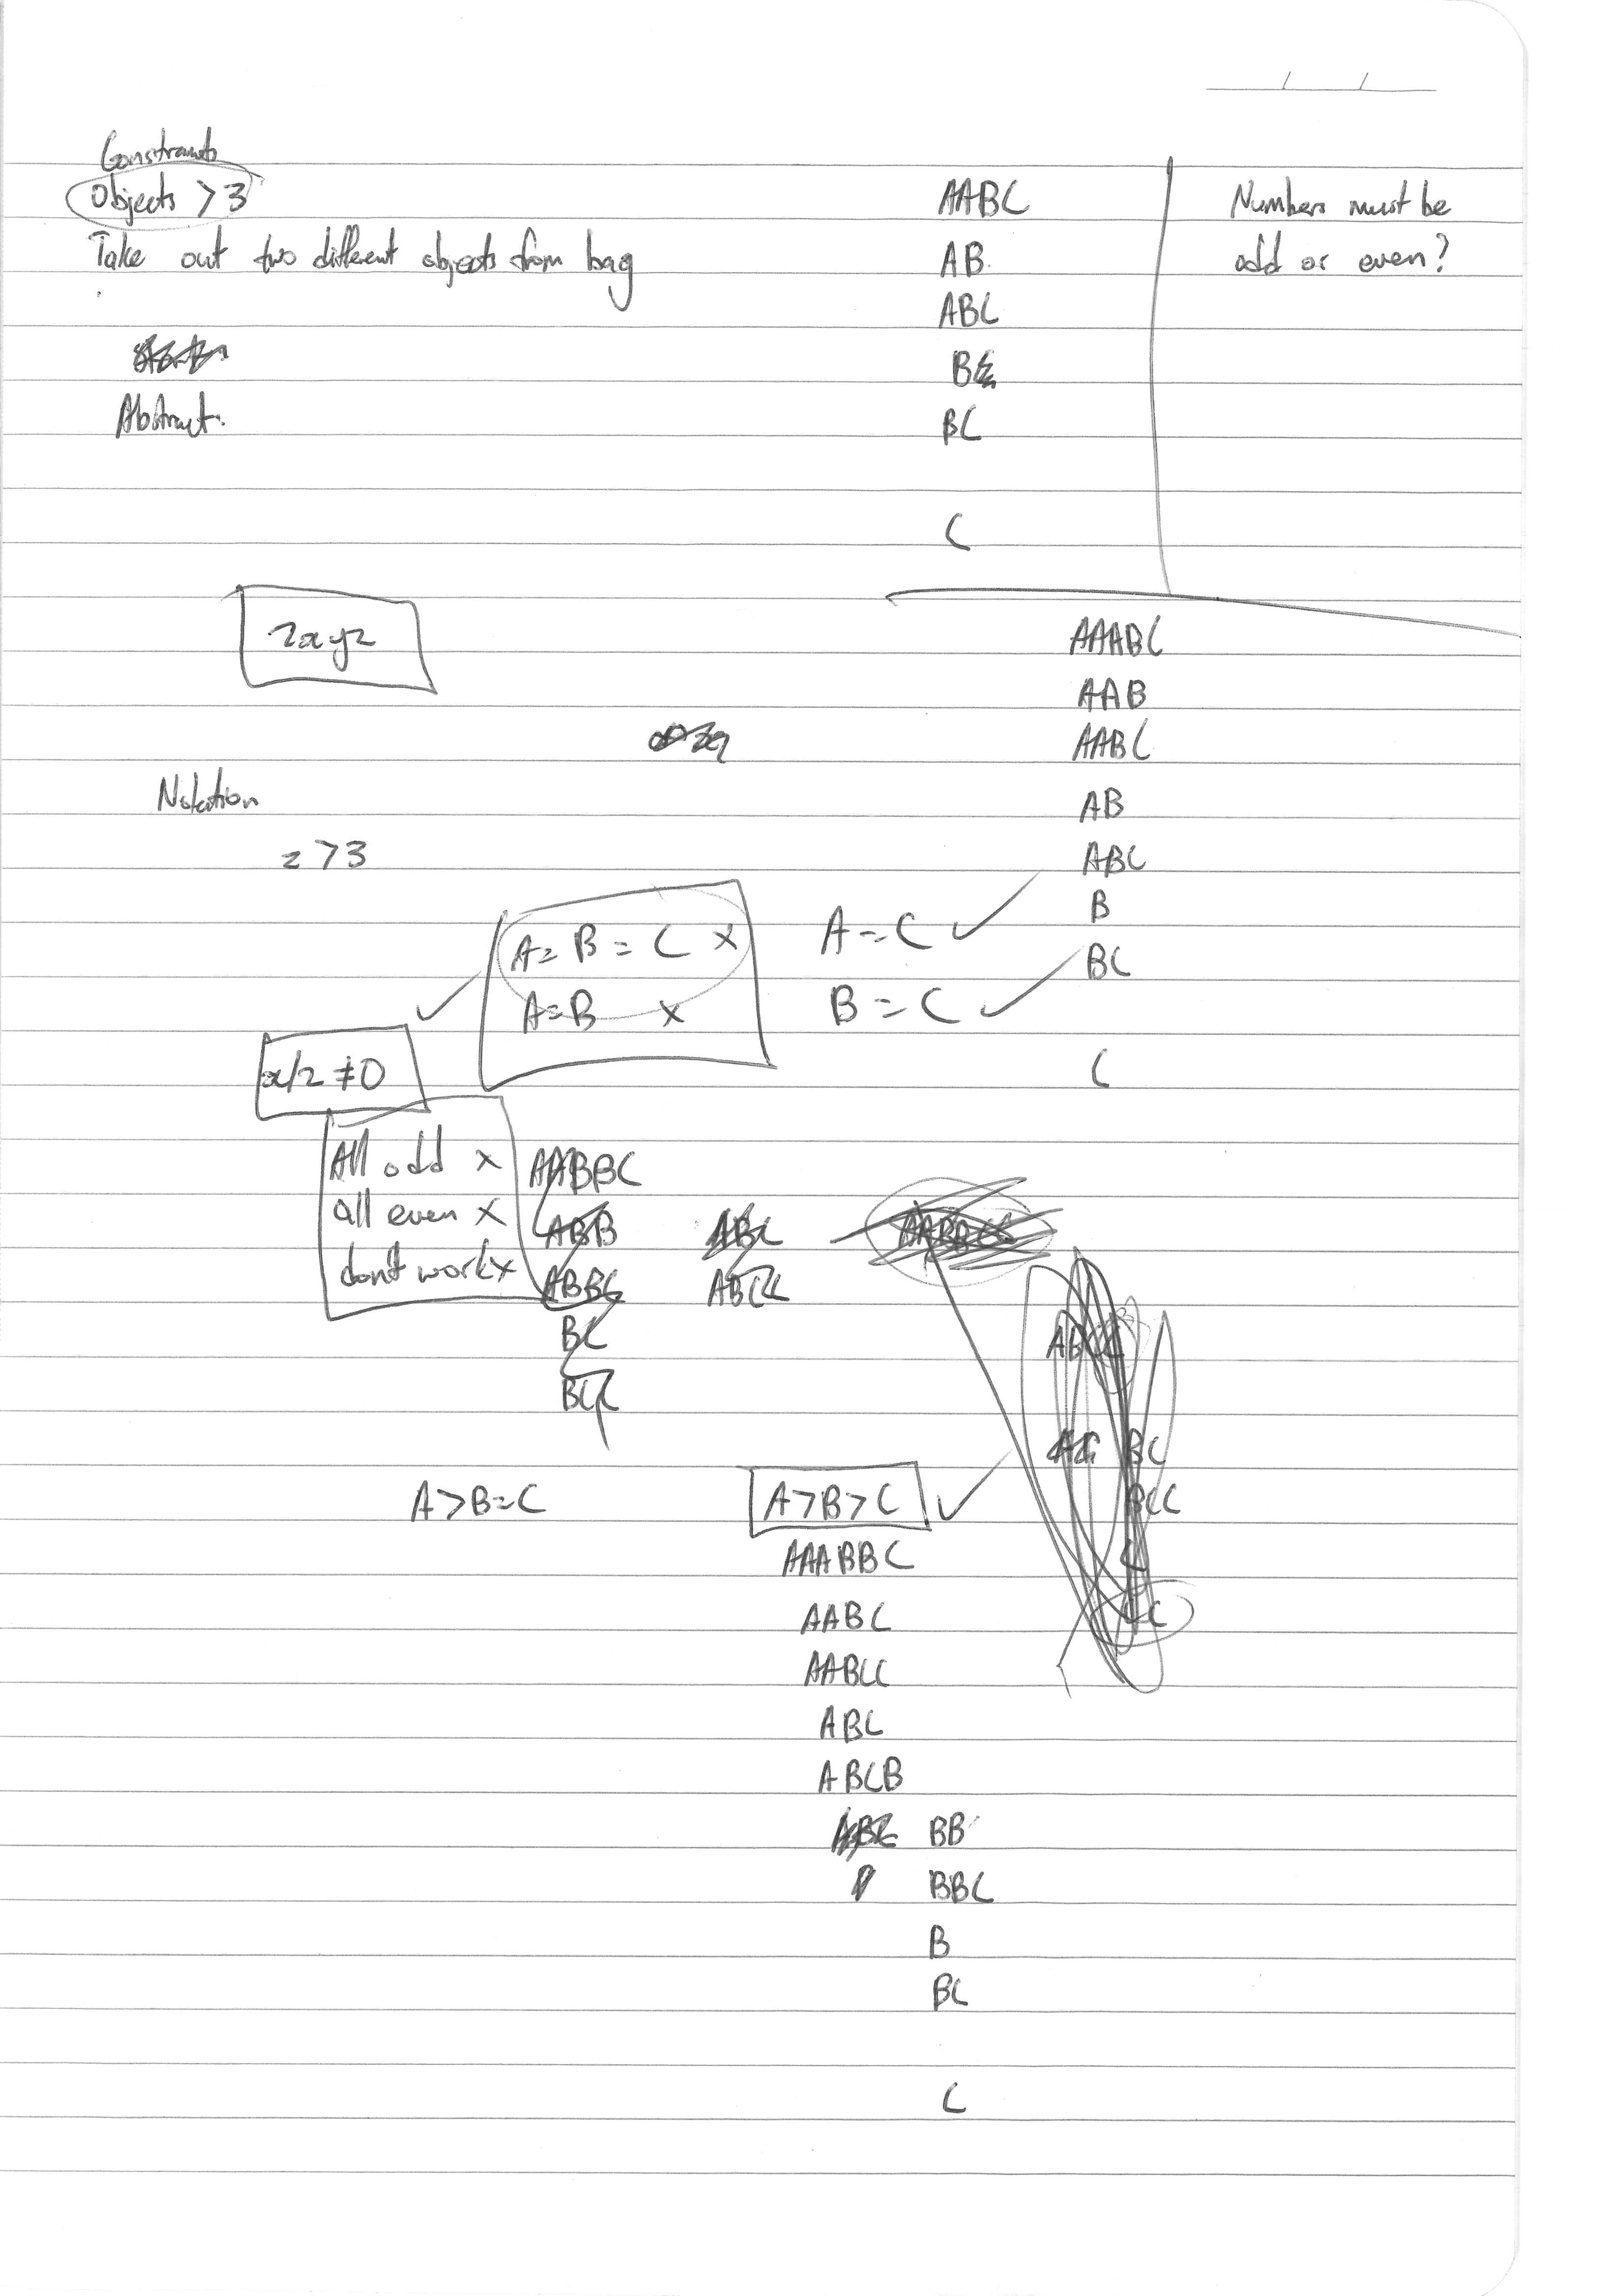 Constraints
Objects >3
Take out two different objects from bag
Abstract.
AABC
AB
ABC
B
BC
C
Numbers must be
odd or even?
2xyz
Notation
z >3
AAABC
AAB
AABC
AB
ABC
B
BC
C
A = B = C x
A=B x
A = C ✓
B = C ✓
✓
x/2 ≠0
All odd x
all even x
dont work x
AABBC
ABB
ABBC
BC
BCC
ABC
ABCC
A>B=C
A>B>C ✓
AAABBC
AABC
AABCC
ABC
ABCB
BB
BBC
B
BC
C